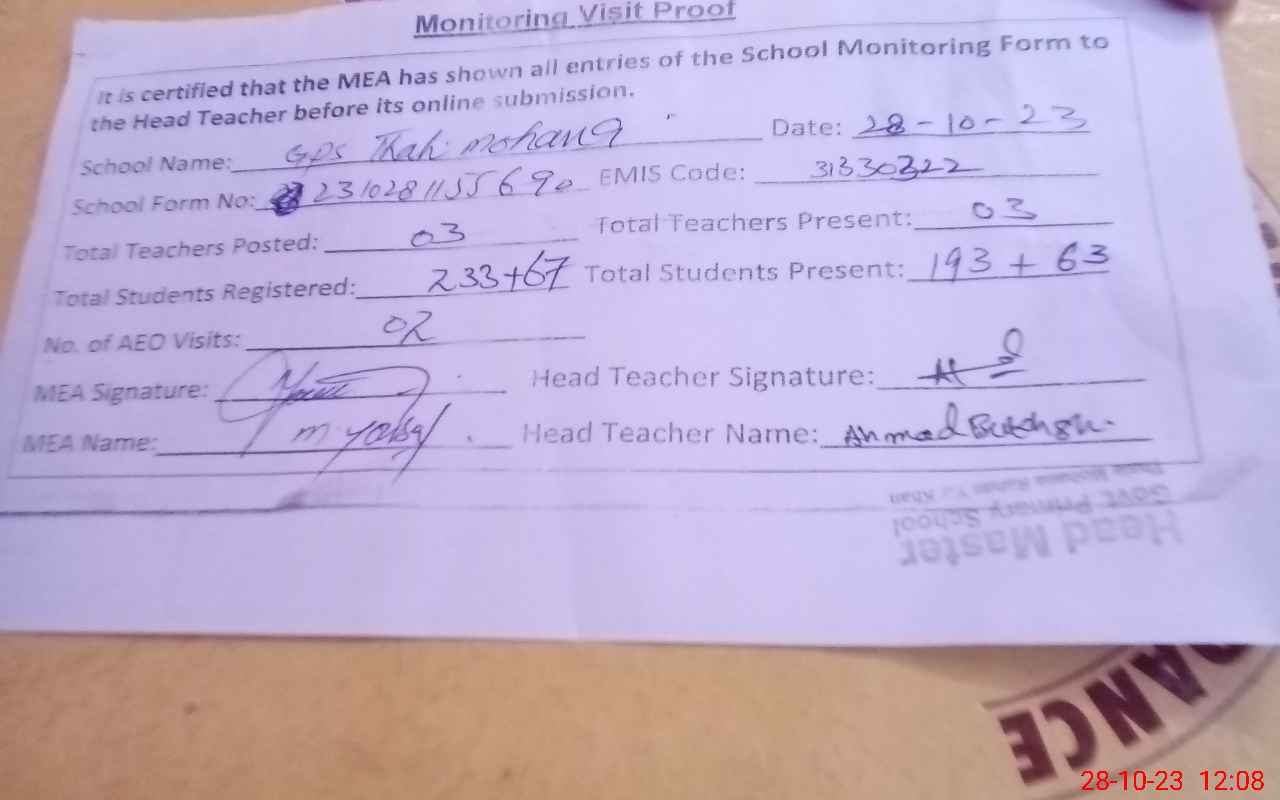 Monitoring Visit Proof
It is certified that the MEA has shown all entries of the School Monitoring Form to
the Head Teacher before its online submission.
School Name: GPS Thah mohana Date: 28-10-23
School Form No: 2310281155690 EMIS Code: 31330322
Total Teachers Posted: 03 Total Teachers Present: 03
Total Students Registered: 233+67 Total Students Present: 193 + 63
No. of AEO Visits: 02
MEA Signature: Head Teacher Signature:
MEA Name: M Head Teacher Name: Ahmad
Head Master
Govt Primary School
Khan
DANCE
28-10-23 12:08